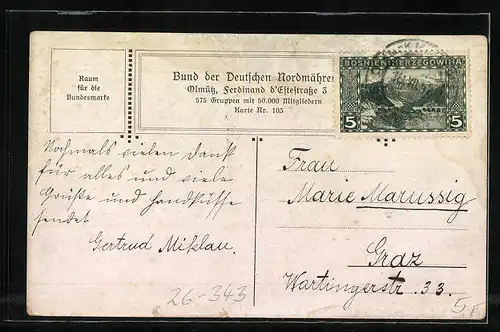 Raum
für die
Bundesmarke
Bund der Deutschen Nordmähre
Olmütz, Ferdinand d'Estestraße 3
575 Gruppen mit 50.000 Mitgliedern
Karte Nr. 103
BOSNIEN HERZEGOWINA
5 5
Nochmals vielen Dank
für alles und viele
Grüße und Handküsse
sendet
Gertrud
Frau
Marie Marussig
Graz
Wartingerstr. 33.
26-343